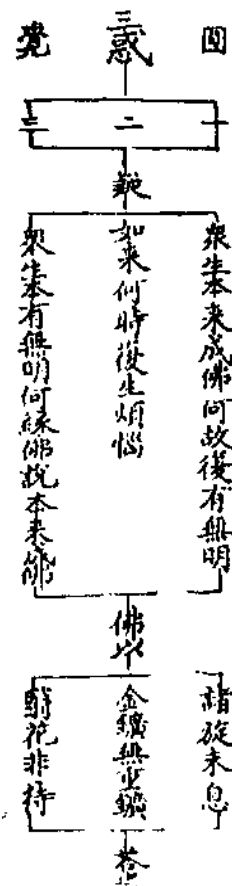 圓
三惑
覺
一
二
三
衆生本来成佛何故復有無明
如来何時復生煩惱
衆生本有無明何緣佛說本来佛
佛以
諸旋未息
金鑛無重鑛
翳花非待
答